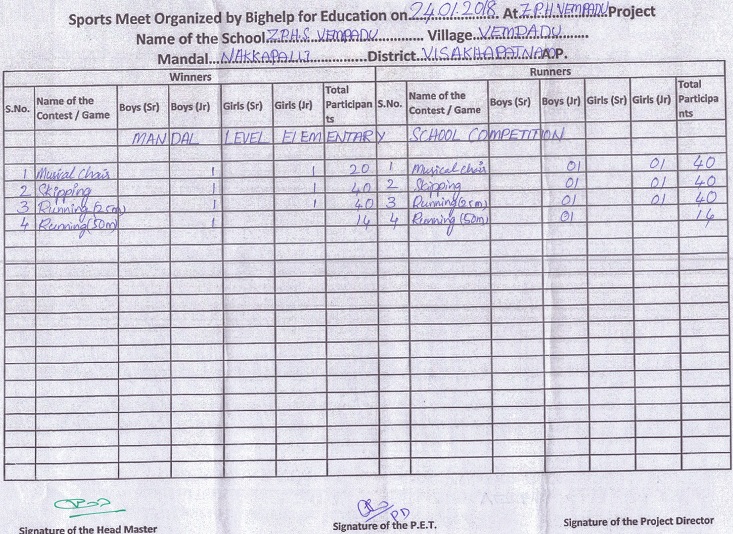 Sports Meet Organized by Bighelp for Education on 24.01.2018. At Z.P.H.VEMPADU Project
Name of the School Z.P.H.S. VEMPADU Village. VEMPADU
Mandal NAKKAPALLI District. VISAKHAPATNAM A.P.
Winners Runners
S.No. Name of the Contest / Game Boys (Sr) Boys (Jr) Girls (Sr) Girls (Jr) Total Participants S.No. Name of the Contest / Game Boys (Sr) Boys (Jr) Girls (Sr) Girls (Jr) Total Participants
MANDAL LEVEL ELEMENTARY SCHOOL COMPETITION
1 Musical chair 1 1 20 1 Musical chair 01 01 40
2 Skipping 1 1 40 2 Skipping 01 01 40
3 Running 1 1 40 3 Running 01 01 40
4 Running (50m) 1 14 4 Running (50m) 01 14
PD
Signature of the Head Master Signature of the P.E.T. Signature of the Project Director